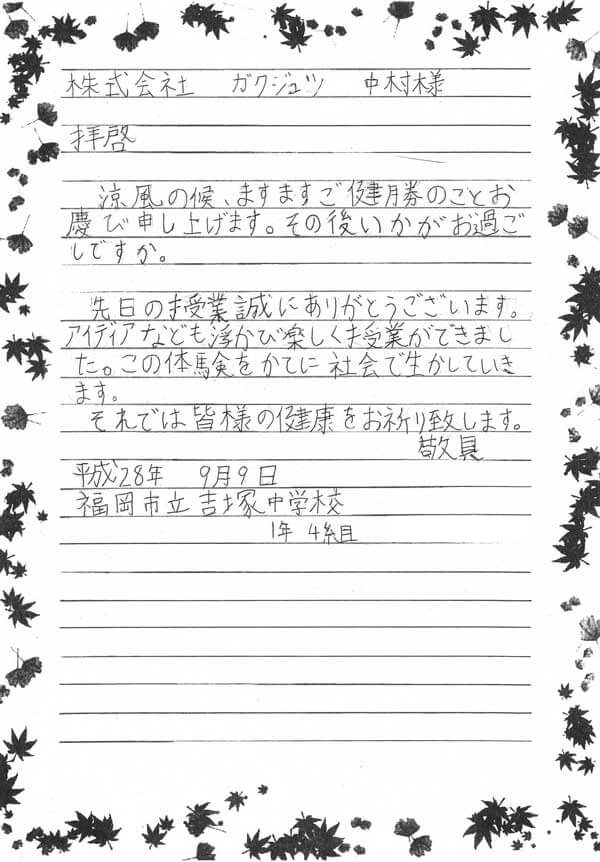 株式会社　ガクジュツ　中村様
拝啓
涼風の候、ますますご健勝のことお
慶び申し上げます。その後いかがお過ご
しですか。
先日の授業誠にありがとうございます。
アイディアなども浮かび楽しく授業ができまし
た。この体験をかてに社会で生かしていき
ます。
それでは皆様の健康をお祈り致します。
敬具
平成28年　9月9日
福岡市立吉塚中学校
1年　4組